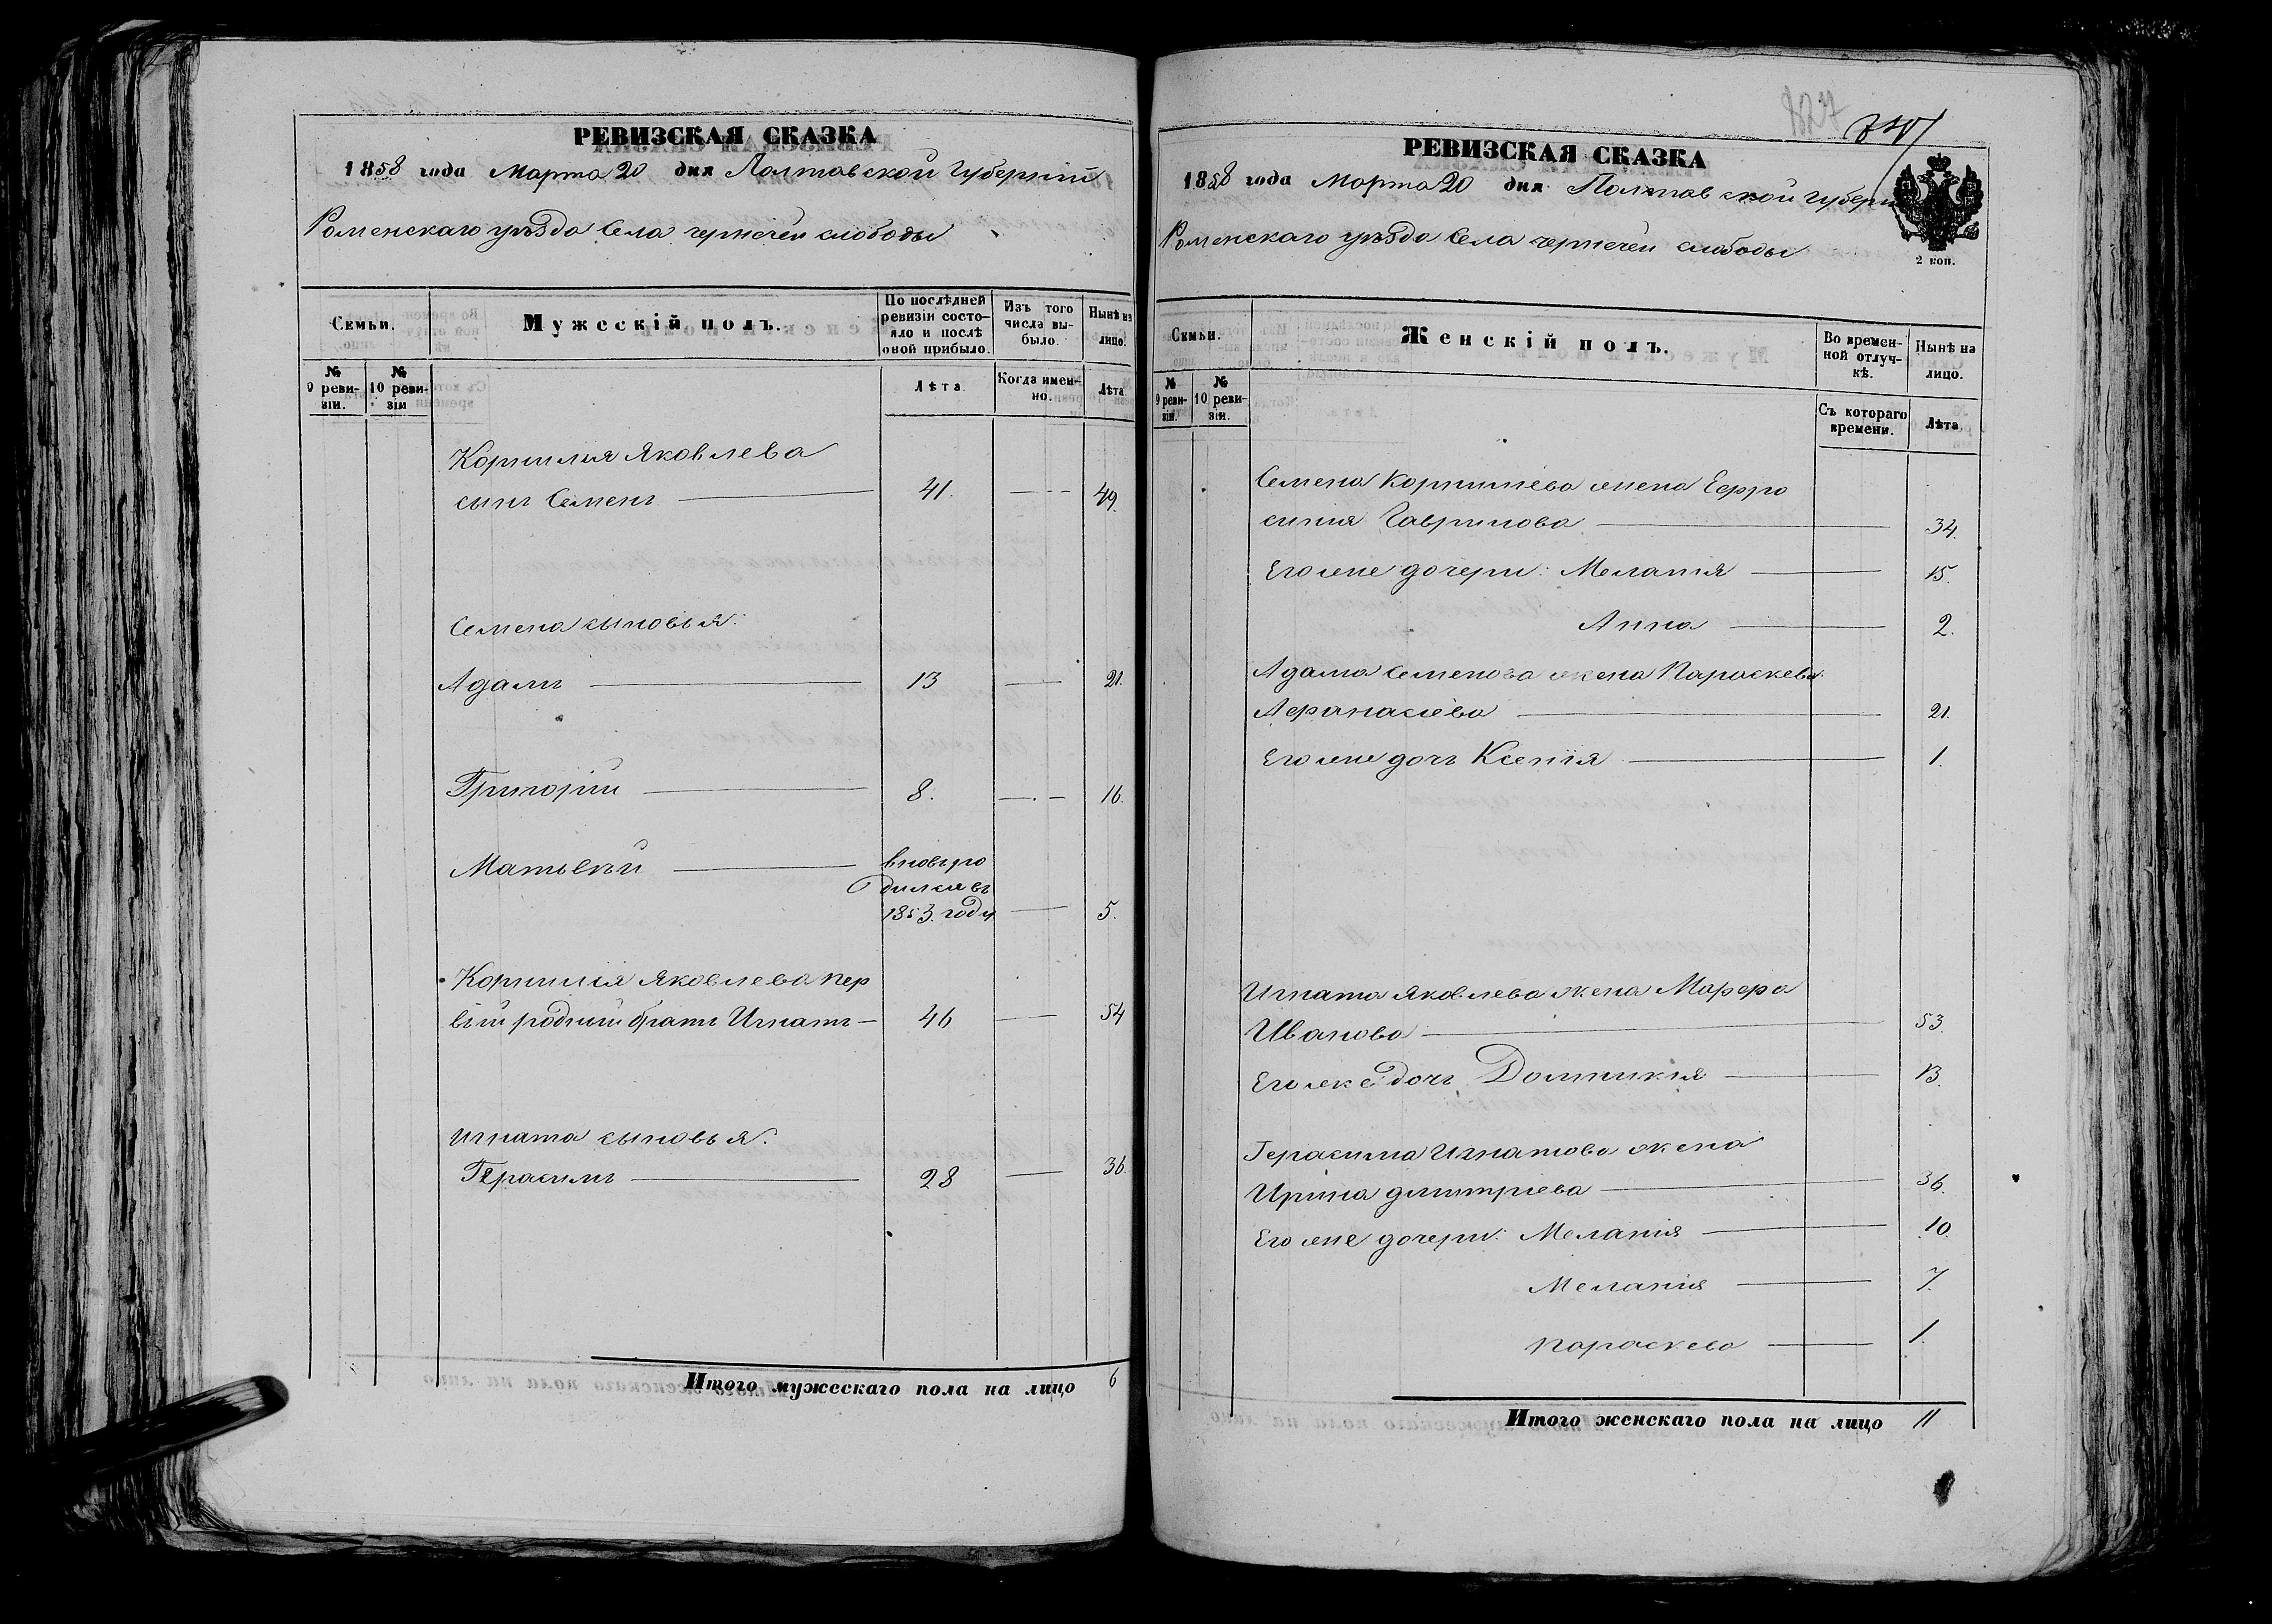 РЕВИЗСКАЯ СКАЗКА
1858 года Марта 20 дня Полтавской Губерніи
Роменскаго уѣзда Села чернечей слободы
Семьи.
Мужескій полъ.
По послѣдней ревизіи состояло и послѣ оной прибыло.
Изъ того числа выбыло.
Нынѣ на лицо.
№ 9 ревизіи.
№ 10 ревизіи
Лѣта
Когда именно.
Лѣта
Корнилія Яковлева
сынъ Семенъ 41. 49.
Семена сыновья:
Адамъ 13 21.
Григорій 8. 16.
Матвѣй вновь ро
дился въ
1853. году 5.
Корнилія Яковлева пер
вый родний братъ Игнатъ 46 54
Игната сыновья:
Герасимъ 28 36.
Итого мужескаго пола на лицо 6
827
РЕВИЗСКАЯ СКАЗКА
1858 года Марта 20 дня Полтавской губерн
Роменскаго уѣзда Села чернечей слободы
2 коп.
Семьи.
Женскій полъ.
Во временной отлучкѣ.
Нынѣ на лицо.
№ 9 ревизіи.
№ 10 ревизіи.
Съ котораго времени.
Лѣта
Семена Корниліева жена Ефро
синія Гаврилова 34.
Его же дочери: Меланія 15.
Анна 2.
Адама Семенова жена Параскева
Афанасіева 21.
Его же дочь Ксенія 1.
Игната Яковлева жена Марфа
Иванова 53.
Его же дочь Домникія 13.
Герасима Игнатова жена
Ирина дмитріева 36.
Его же дочери: Меланія 10.
Меланія 7.
Параскева 1.
Итого женскаго пола на лицо 11